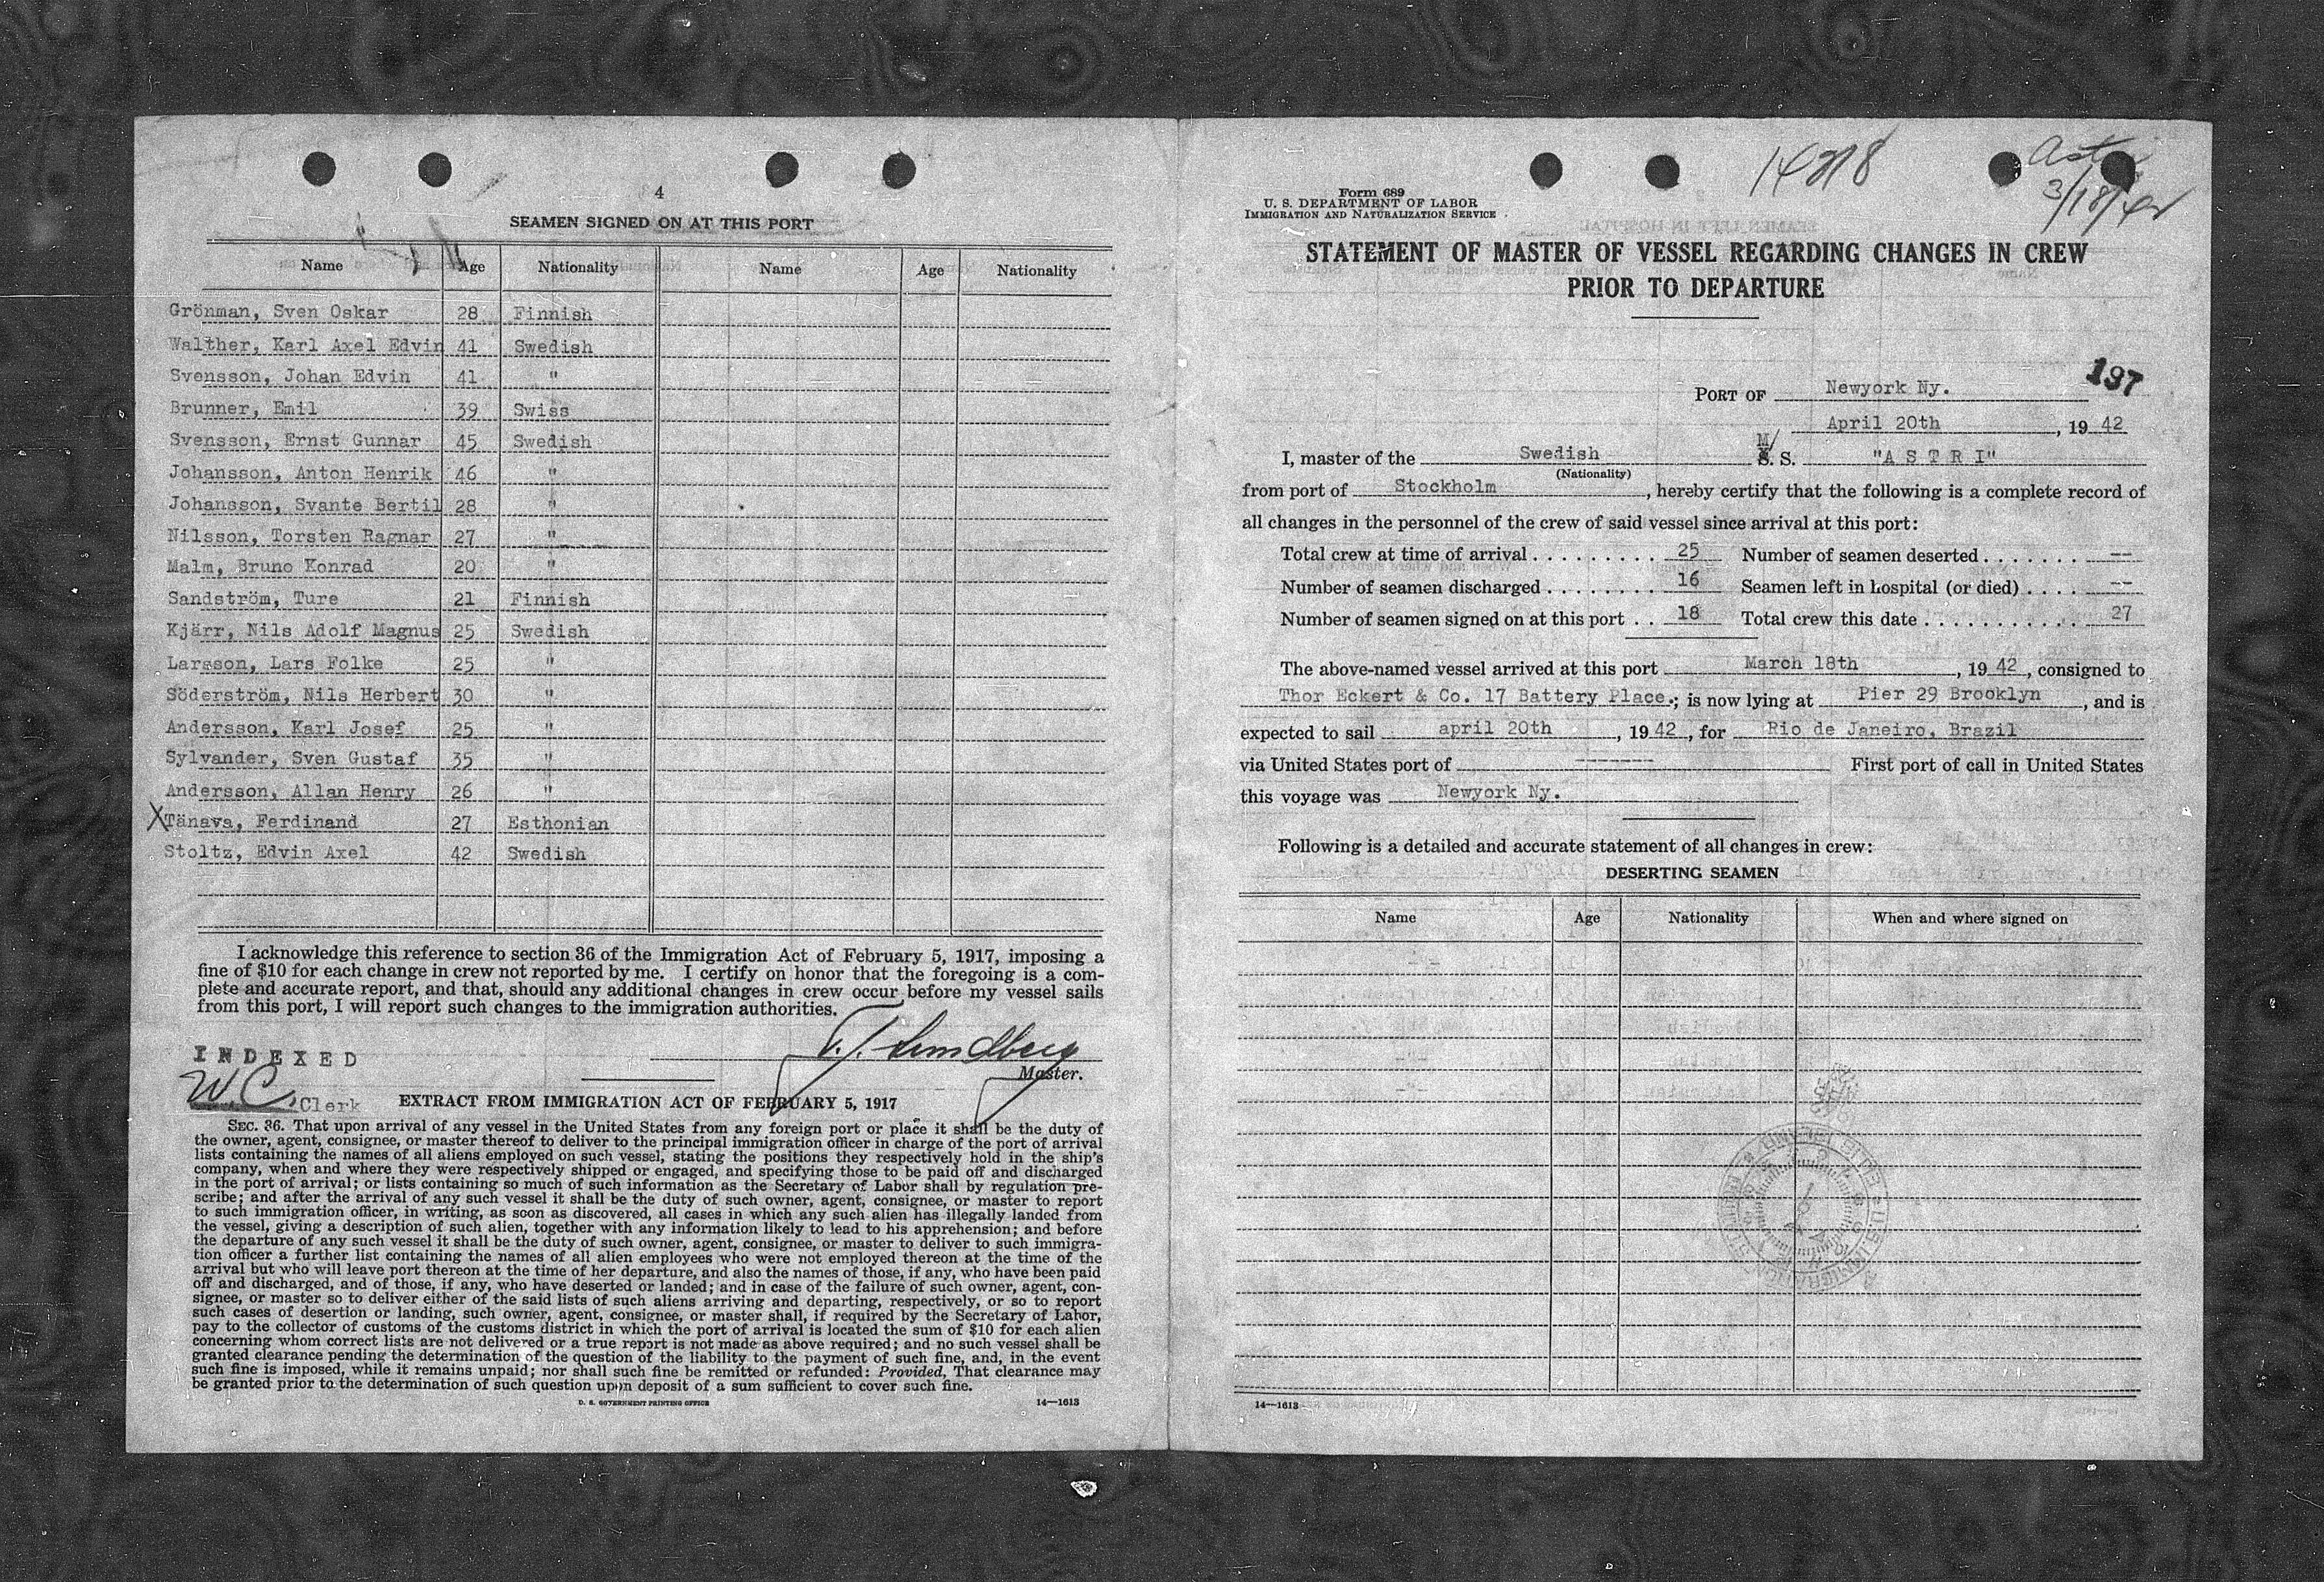 4
SEAMEN SIGNED ON AT THIS PORT
Name Age Nationality Name Age Nationality
Grönman, Sven Oskar 28 Finnish
Walther, Karl Axel Edvin 41 Swedish
Svensson, Johan Edvin 41 "
Brunner, Emil 39 Swiss
Svensson, Ernst Gunnar 45 Swedish
Johansson, Anton Henrik 46 "
Johansson, Svante Bertil 28 "
Nilsson, Torsten Ragnar 27 "
Malm, Bruno Konrad 20 "
Sandström, Ture 21 Finnish
Kjärr, Nils Adolf Magnus 25 Swedish
Larsson, Lars Folke 25 "
Söderström, Nils Herbert 30 "
Andersson, Karl Josef 25 "
Sylvander, Sven Gustaf 35 "
Andersson, Allan Henry 26 "
X Tänava, Ferdinand 27 Esthonian
Stoltz, Edvin Axel 42 Swedish
I acknowledge this reference to section 36 of the Immigration Act of February 5, 1917, imposing a
fine of $10 for each change in crew not reported by me. I certify on honor that the foregoing is a com-
plete and accurate report, and that, should any additional changes in crew occur before my vessel sails
from this port, I will report such changes to the immigration authorities.
INDEXED
Lundberg
Master.
W.C. Clerk
EXTRACT FROM IMMIGRATION ACT OF FEBRUARY 5, 1917
SEC. 36. That upon arrival of any vessel in the United States from any foreign port or place it shall be the duty of
the owner, agent, consignee, or master thereof to deliver to the principal immigration officer in charge of the port of arrival
lists containing the names of all aliens employed on such vessel, stating the positions they respectively hold in the ship's
company, when and where they were respectively shipped or engaged, and specifying those to be paid off and discharged
in the port of arrival; or lists containing so much of such information as the Secretary of Labor shall by regulation pre-
scribe; and after the arrival of any such vessel it shall be the duty of such owner, agent, consignee, or master to report
to such immigration officer, in writing, as soon as discovered, all cases in which any such alien has illegally landed from
the vessel, giving a description of such alien, together with any information likely to lead to his apprehension; and before
the departure of any such vessel it shall be the duty of such owner, agent, consignee, or master to deliver to such immigra-
tion officer a further list containing the names of all alien employees who were not employed thereon at the time of the
arrival but who will leave port thereon at the time of her departure, and also the names of those, if any, who have been paid
off and discharged, and of those, if any, who have deserted or landed; and in case of the failure of such owner, agent, con-
signee, or master so to deliver either of the said lists of such aliens arriving and departing, respectively, or so to report
such cases of desertion or landing, such owner, agent, consignee, or master shall, if required by the Secretary of Labor,
pay to the collector of customs of the customs district in which the port of arrival is located the sum of $10 for each alien
concerning whom correct lists are not delivered or a true report is not made as above required; and no such vessel shall be
granted clearance pending the determination of the question of the liability to the payment of such fine, and, in the event
such fine is imposed, while it remains unpaid; nor shall such fine be remitted or refunded: Provided, That clearance may
be granted prior to the determination of such question upon deposit of a sum sufficient to cover such fine.
U. S. GOVERNMENT PRINTING OFFICE 14—1613
Form 689
U. S. DEPARTMENT OF LABOR
IMMIGRATION AND NATURALIZATION SERVICE
14218
Astri
3/18/42
STATEMENT OF MASTER OF VESSEL REGARDING CHANGES IN CREW
PRIOR TO DEPARTURE
197
PORT OF Newyork Ny.
April 20th, 19 42
I, master of the Swedish M/ S. S. "A S T R I"
(Nationality)
from port of Stockholm, hereby certify that the following is a complete record of
all changes in the personnel of the crew of said vessel since arrival at this port:
Total crew at time of arrival 25 Number of seamen deserted --
Number of seamen discharged 16 Seamen left in hospital (or died) --
Number of seamen signed on at this port 18 Total crew this date 27
The above-named vessel arrived at this port March 18th, 19 42, consigned to
Thor Eckert & Co. 17 Battery Place.; is now lying at Pier 29 Brooklyn, and is
expected to sail april 20th, 19 42, for Rio de Janeiro, Brazil
via United States port of ------- First port of call in United States
this voyage was Newyork Ny.
Following is a detailed and accurate statement of all changes in crew:
DESERTING SEAMEN
Name Age Nationality When and where signed on
14—1613